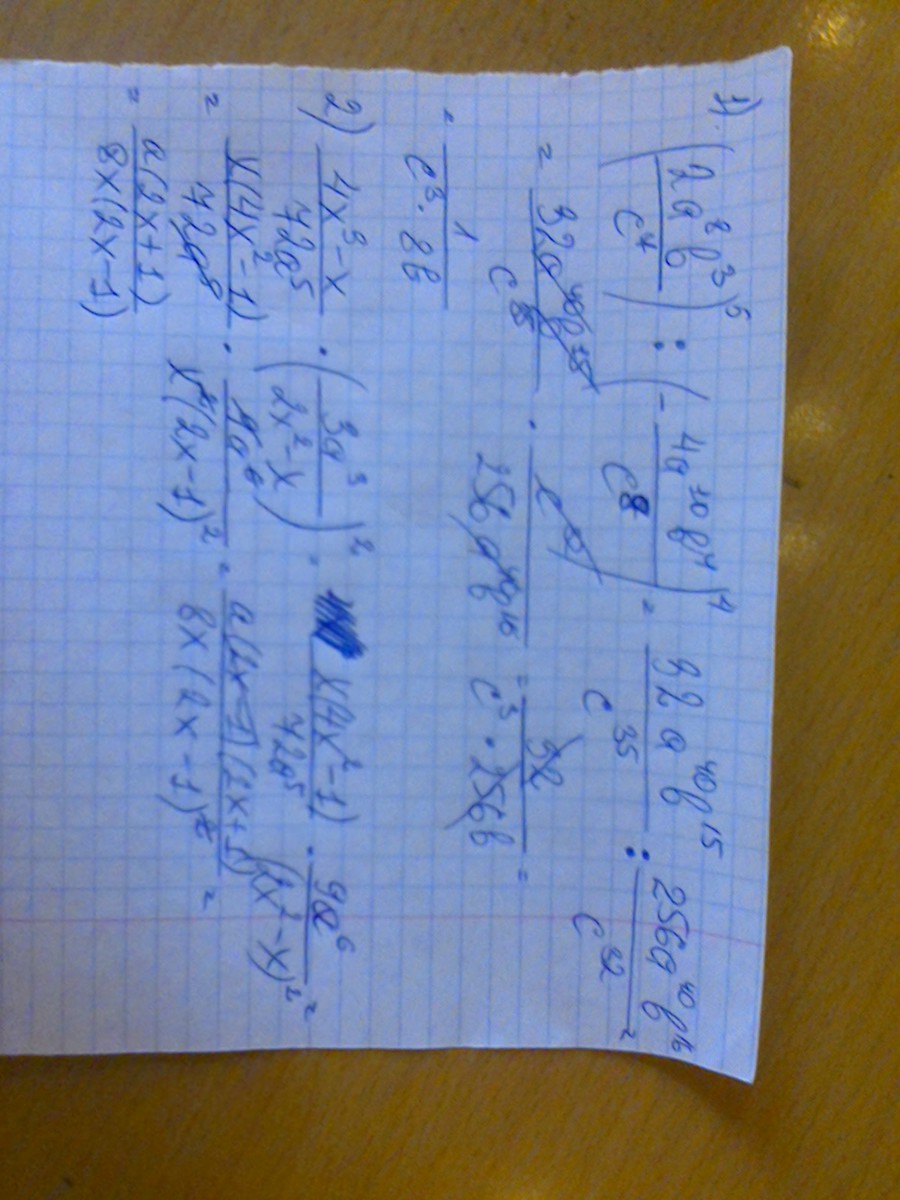 1) (2a⁸b³/c⁷)⁵ : (-4a¹⁰b⁴/c⁸)⁴ = 32a⁴⁰b¹⁵/c³⁵ : 256a⁴⁰b¹⁶/c³² =
= 32a⁴⁰b¹⁵/c³⁵ · c³²/256a⁴⁰b¹⁶ = 32/c³·256b =
= 1/c³·8b
2) 4x³-x/42a⁵ · (3a³/2x²-x)² = x(4x²-1)/42a⁵ · 9a⁶/(2x²-x)² =
= x(4x²-1)/42a⁵ · 9a⁶/x²(2x-1)² = a(2x-1)(2x+1)/8x(2x-1)² =
= a(2x+1)/8x(2x-1)